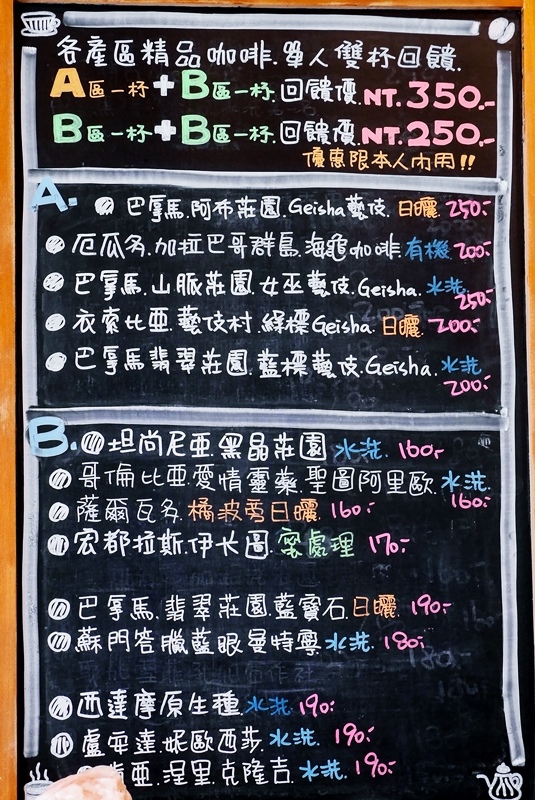 各產區精品咖啡.單人雙杯回饋.
A區一杯+B區一杯.回饋價.NT.350.-
B區一杯+B區一杯.回饋價.NT.250.-
優惠限本人內用!!
A. 巴拿馬.阿布莊園.Geisha藝伎.日曬.250.-
厄瓜多.加拉巴哥群島.海龜咖啡.有機.200.-
巴拿馬.山脈莊園.女巫藝伎.Geisha.水洗.
250.-
衣索比亞.藝伎村.綠標Geisha.日曬.200.-
巴拿馬.翡翠莊園.藍標藝伎.Geisha.水洗.
200.-
B. 坦尚尼亞.黑晶莊園.水洗.160.-
哥倫比亞愛情靈藥.聖圖阿里歐.水洗.
160.-
薩爾瓦多.橘波旁日曬.160.-
宏都拉斯.伊长圖.蜜處理.170.-
巴拿馬.翡翠莊園.藍寶石.日曬.190.-
蘇門答臘藍眼曼特寧.水洗.180.-
西達摩原生種.水洗.190.-
盧安達.妮歐西莎.水洗.190.-
肯亞.涅里.克隆吉.水洗.190.-